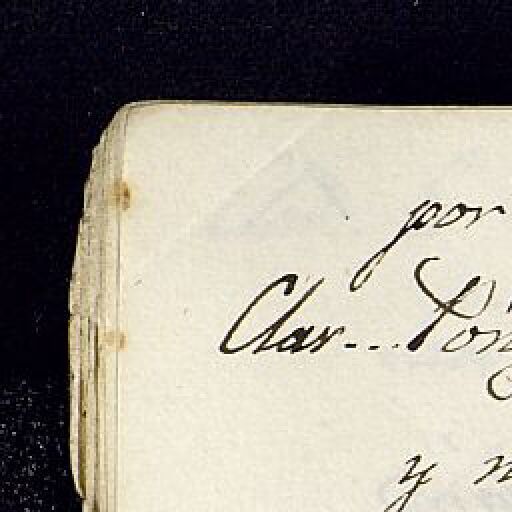 por
Clar... Pon
y